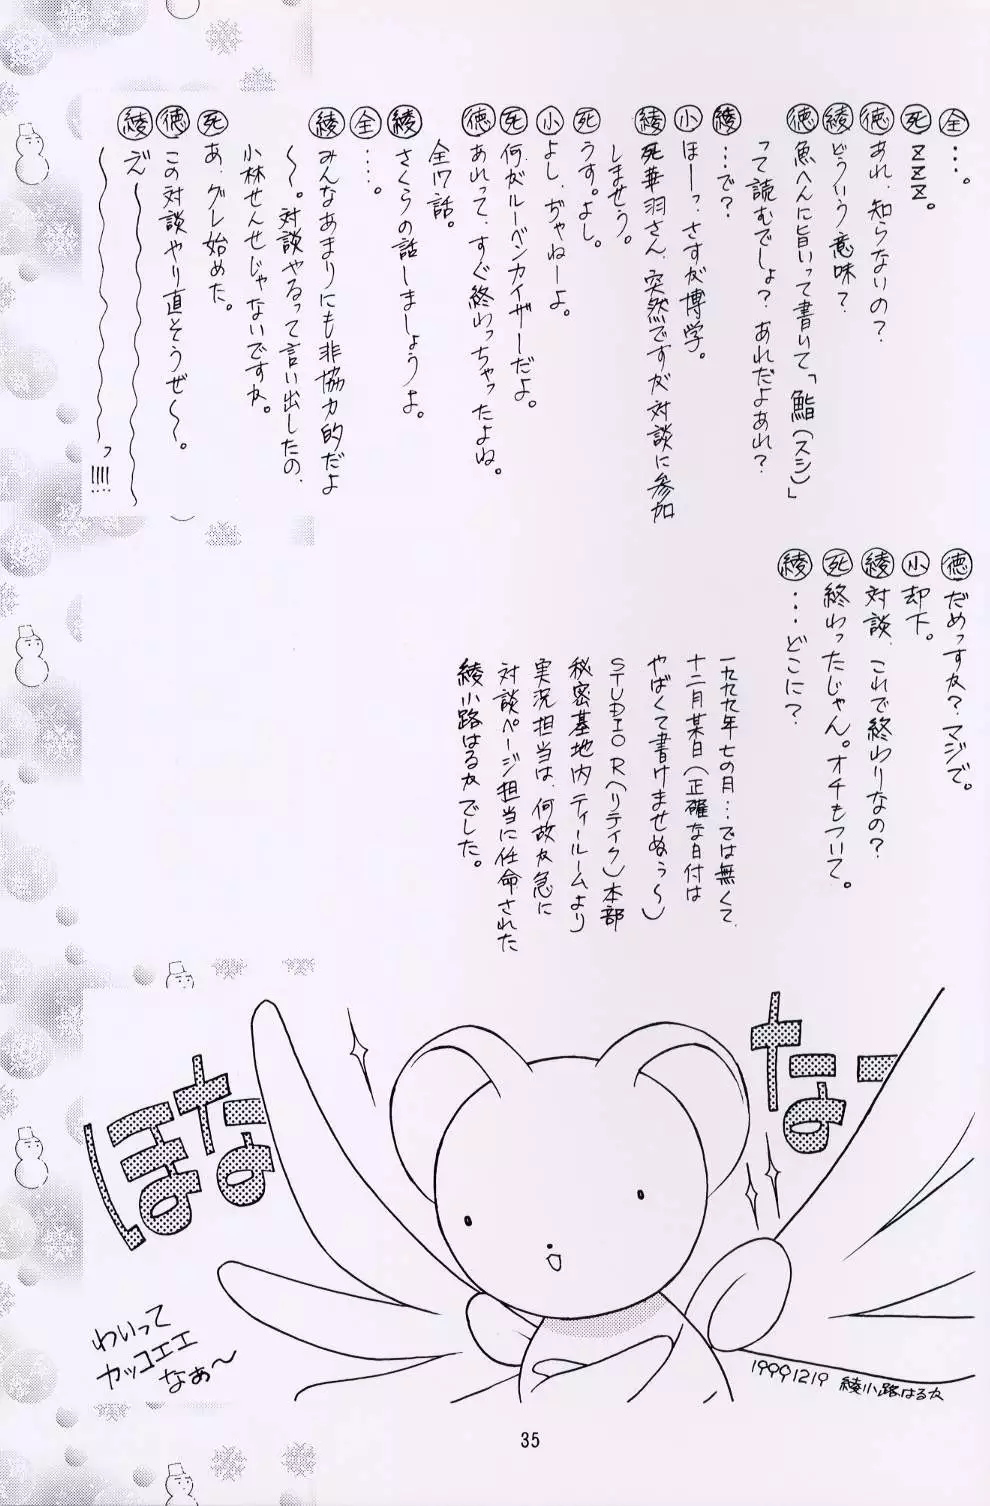 全 …。
死 ZZZ。
徳 あれ、知らないの?
綾 どういう意味?
徳 魚へんに旨いって書いて「鮨(スシ)」
って読むでしょ?あれだよあれ?
綾 …で?
小 ほーっ、さすが博学。
綾 死華羽さん、突然ですが対談に参加
しませう。
死 うす。よし。
小 よし、ぢゃねーよ。
死 何がルーベンカイザーだよ。
徳 あれって、すぐ終わっちゃったよね。
全17話。
綾 さくらの話しましょうよ。
全 …。
綾 みんなあまりにも非協力的だよ
〜。対談やるって言い出したの、
小林せんせじゃないですか。
死 あ、グレ始めた。
徳 この対談やり直そうぜ〜。
綾 ぞえ〜〜〜〜〜
〜〜〜〜〜っ!!!!
徳 だめっすか?マジで。
小 却下。
綾 対談、これで終わりなの?
死 終わったじゃん。オチもついて。
綾 …どこに?
一九九九年七の月…では無くて、
十二月某日(正確な日付は
やばくて書けませぬぅ〜)
STUDIO R(リテイク)本部
秘密基地内ティールームより
実況担当は、何故か急に
対談ページ担当に任命された
綾小路はるかでした。
なー
ほな
わいって
カッコエエ
なぁ〜
19991219 綾小路はるか
35